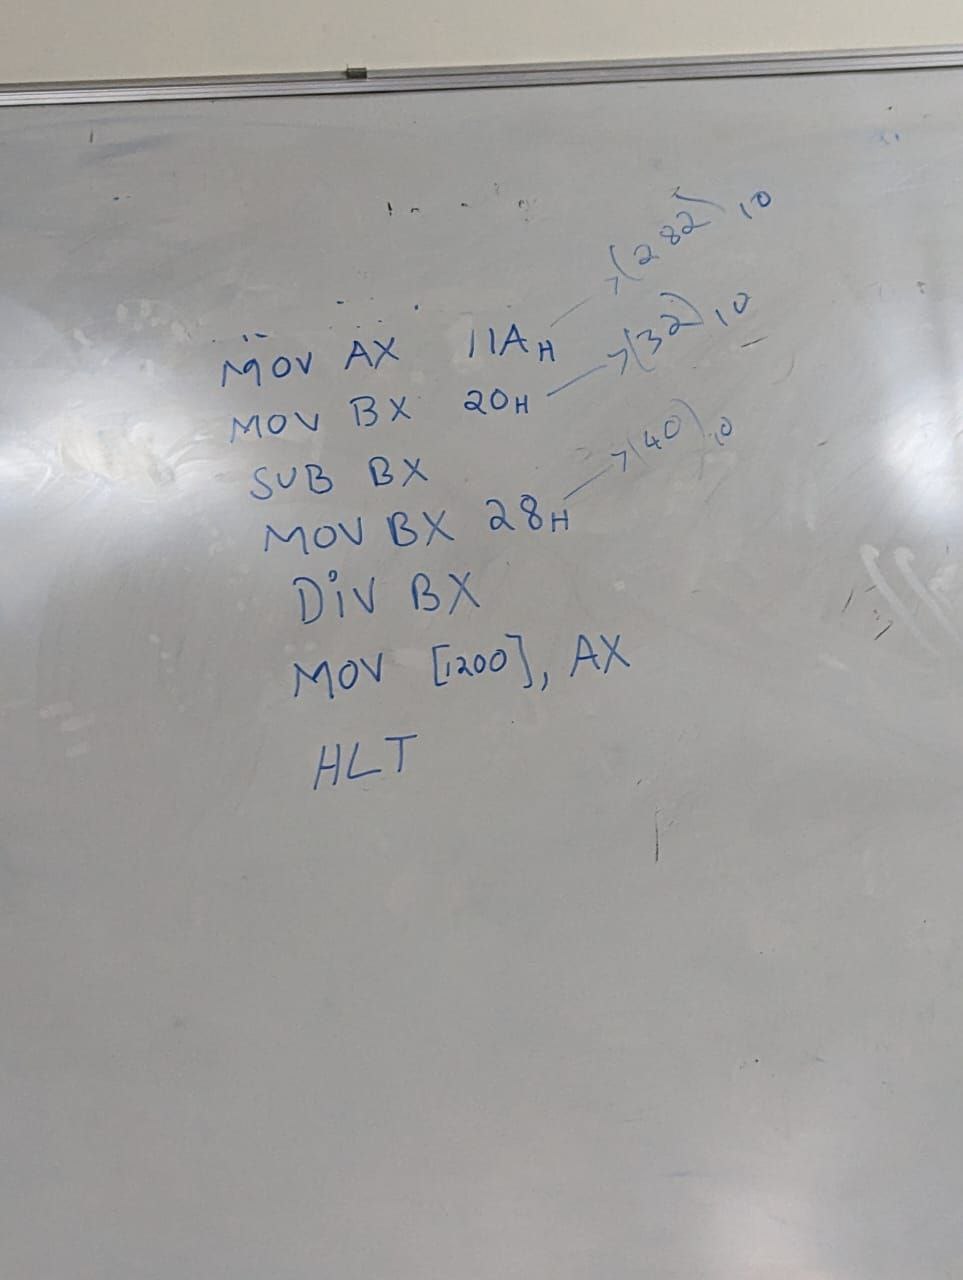 MOV AX 11AH →(282)10
MOV BX 20H →(32)10
SUB BX
MOV BX 28H →(40)10
DiV BX
MOV [1200], AX
HLT